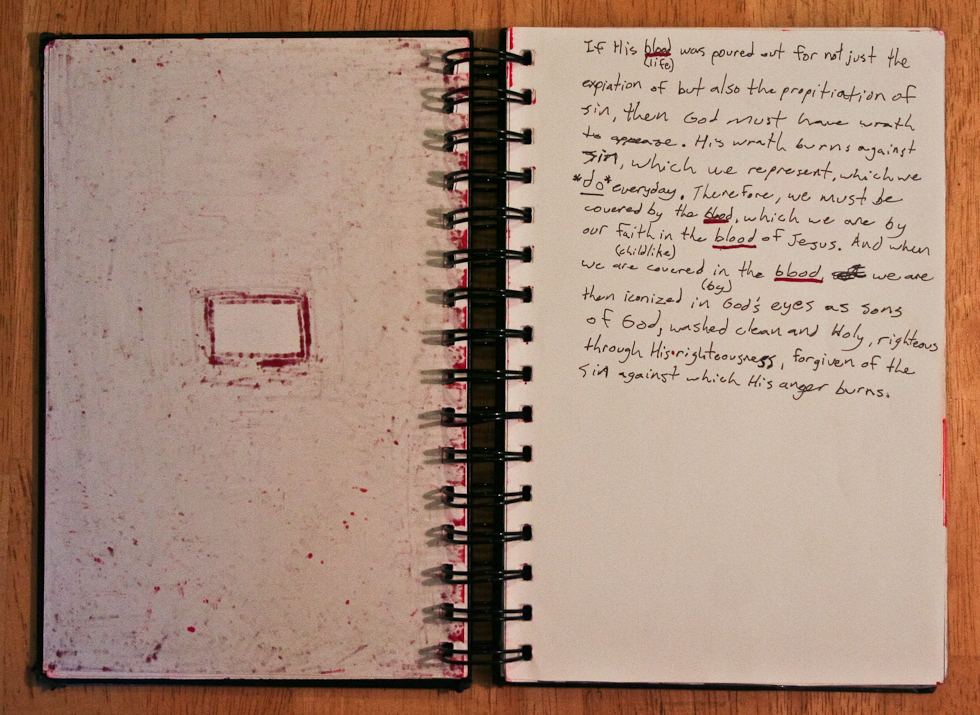 If His blood was poured out for not just the
(life)
expiation of but also the propitiation of
sin, then God must have wrath
to appease. His wrath burns against
sin, which we represent, which we
*do* everyday. Therefore, we must be
covered by the blood, which we are by
our faith in the blood of Jesus. And when
(childlike)
we are covered in the blood, we are
(by)
then iconized in God's eyes as sons
of God, washed clean and Holy, righteous
through His righteousness, forgiven of the
sin against which His anger burns.